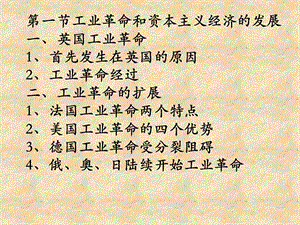 第一节工业革命和资本主义经济的发展
一、英国工业革命
1、首先发生在英国的原因
2、工业革命经过
二、工业革命的扩展
1、法国工业革命两个特点
2、美国工业革命的四个优势
3、德国工业革命受分裂阻碍
4、俄、奥、日陆续开始工业革命